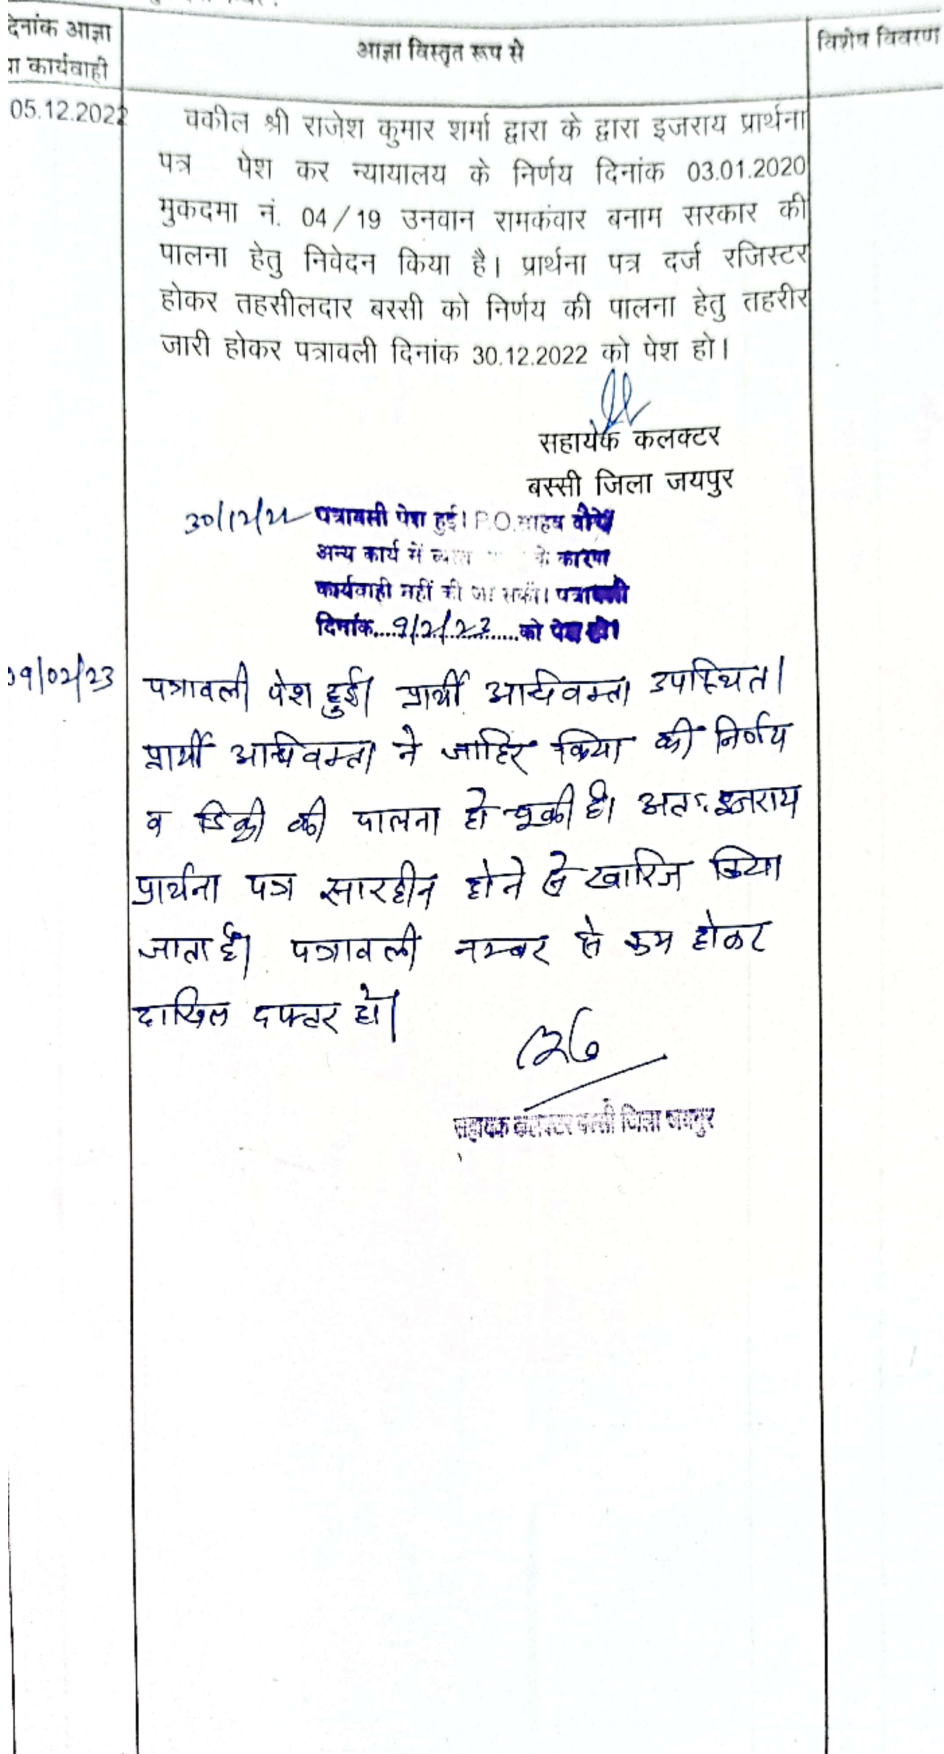 दिनांक आज्ञा
या कार्यवाही
आज्ञा विस्तृत रूप से
विशेष विवरण
05.12.2022
वकील श्री राजेश कुमार शर्मा द्वारा के द्वारा इजराय प्रार्थना
पत्र पेश कर न्यायालय के निर्णय दिनांक 03.01.2020
मुकदमा नं. 04/19 उनवान रामकंवार बनाम सरकार की
पालना हेतु निवेदन किया है। प्रार्थना पत्र दर्ज रजिस्टर
होकर तहसीलदार बस्सी को निर्णय की पालना हेतु तहरीर
जारी होकर पत्रावली दिनांक 30.12.2022 को पेश हो।
सहायक कलक्टर
बस्सी जिला जयपुर
30/12/22 पत्रावली पेश हुई। P.O. साहब
अन्य कार्य में के कारण
कार्यवाही नहीं की जा सकी। पत्रावली
दिनांक....9/2/23......को पेश हो।
09/02/23
पत्रावली पेश हुई। प्रार्थी अधिवक्ता उपस्थित।
प्रार्थी अधिवक्ता ने जाहिर किया की निर्णय
व डिक्री की पालना हो चूकी है। अतः इजराय
प्रार्थना पत्र सारहीन होने से खारिज किया
जाता है। पत्रावली नम्बर से कम होकर
दाखिल दफ्तर हो।
सहायक कलक्टर बस्सी जिला जयपुर